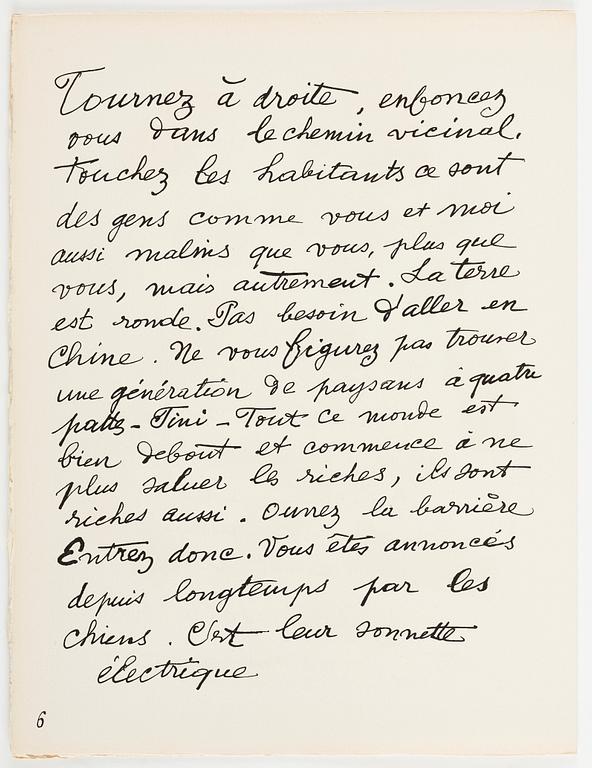 Tournez à droite, enfoncez
vous dans le chemin vicinal.
Touchez les habitants ce sont
des gens comme vous et moi
aussi malins que vous, plus que
vous, mais autrement. La terre
est ronde. Pas besoin d'aller en
Chine. Ne vous figurez pas trouver
une génération de paysans à quatre
pattes - Fini - Tout ce monde est
bien debout et commence à ne
plus saluer les riches, ils sont
riches aussi. Ouvrez la barrière
Entrez donc. Vous êtes annoncés
depuis longtemps par les
chiens. C'est leur sonnette
électrique
6